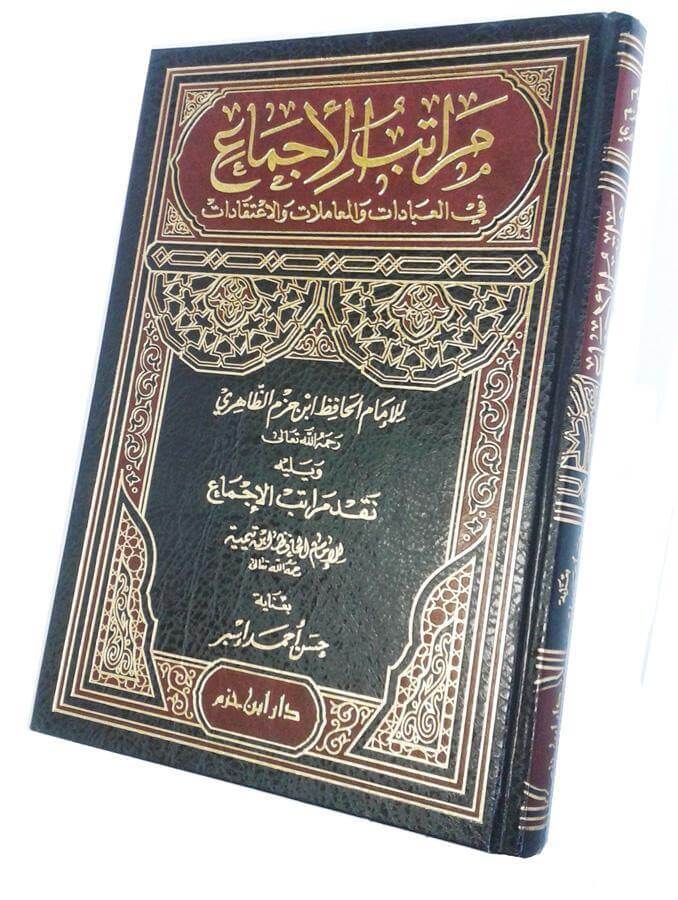 مَراتبُ الإجماع
في العبادات والمعاملات والاعتقادات
للإمام الحافظ ابن حزم الظاهري
رحمه الله تعالى
ويليه
نقد مراتب الإجماع
للإمام الحافظ ابن تيمية
رحمه الله تعالى
بعناية
حسن أحمد إسبر
دار ابن حزم